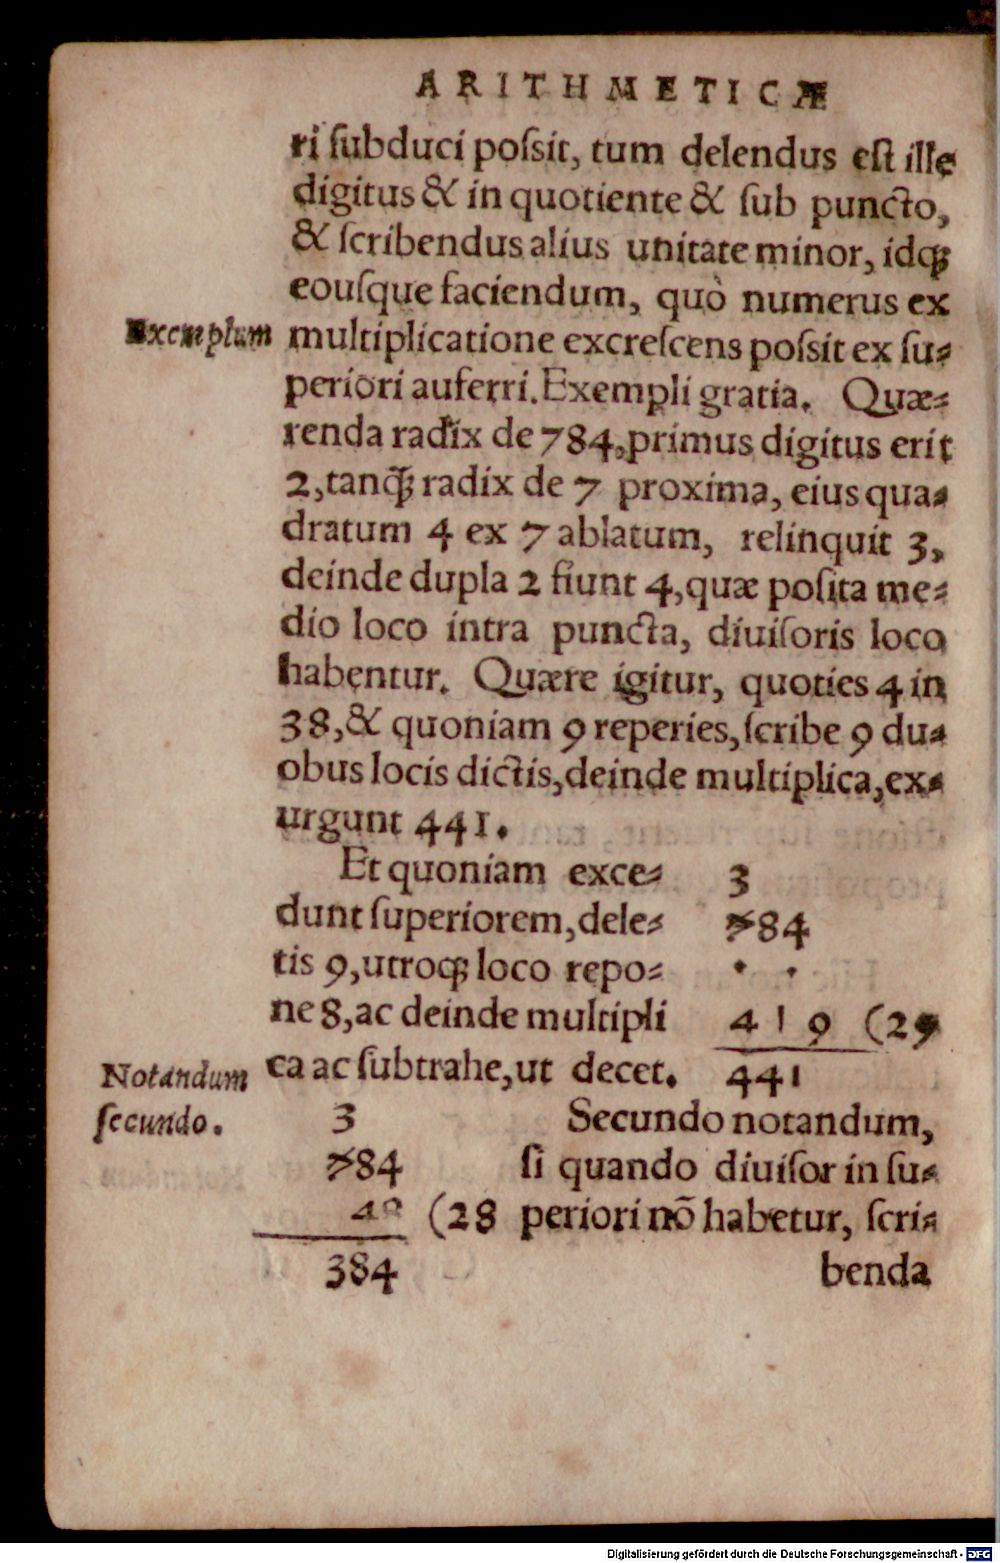 ARITHMETICÆ
ri ſubduci poſsit, tum delendus eſt ille
digitus & in quotiente & ſub puncto,
& ſcribendus alius unitate minor, idq́;
eouſque faciendum, quò numerus ex
Exemplum
multiplicatione excreſcens poſsit ex ſu-
periori auferri. Exempli gratia. Quæ-
renda radix de 784, primus digitus erit
2, tanq́; radix de 7 proxima, eius qua-
dratum 4 ex 7 ablatum, relinquit 3,
deinde dupla 2 fiunt 4, quæ poſita me-
dio loco intra puncta, diuiſoris loco
habentur. Quære igitur, quoties 4 in
38, & quoniam 9 reperies, ſcribe 9 du-
obus locis dictis, deinde multiplica, ex-
urgunt 441.
Et quoniam exce-
dunt ſuperiorem, dele-
tis 9, utroq; loco repo-
ne 8, ac deinde multipli
ca ac ſubtrahe, ut decet.
3
784
. .
4 1 9 (29
441
Notandum
ſecundo.
3
784
48 (28
384
Secundo notandum,
ſi quando diuiſor in ſu-
periori nō habetur, ſcri-
benda
Digitalisierung gefördert durch die Deutsche Forschungsgemeinschaft - DFG